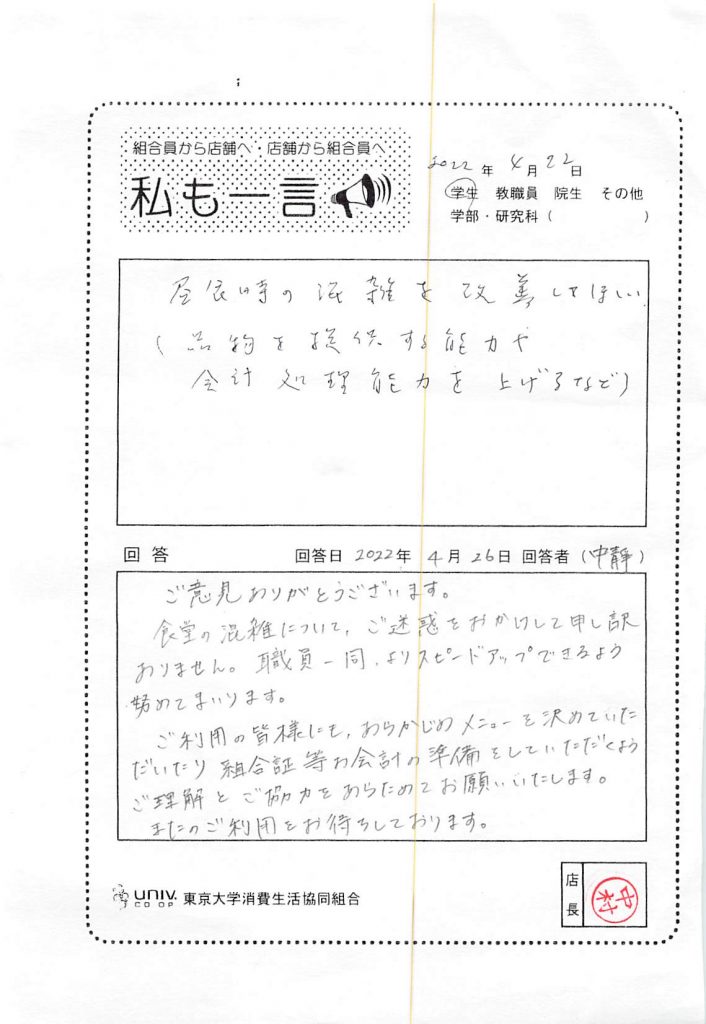 組合員から店舗へ・店舗から組合員へ
私も一言
2022年4月22日
学生 教職員 院生 その他
学部・研究科( )
昼食時の混雑を改善してほしい
(品物を提供する能力や
会計処理能力を上げるなど)
回答 回答日 2022年4月26日 回答者(中静)
ご意見ありがとうございます。
食堂の混雑について、ご迷惑をおかけして申し訳
ありません。職員一同、よりスピードアップできるよう
努めてまいります。
ご利用の皆様にも、あらかじめメニューを決めていた
だいたり組合証等お会計の準備をしていただくよう
ご理解とご協力をあらためてお願いいたします。
またのご利用をお待ちしております。
UNIV. CO-OP 東京大学消費生活協同組合
店長 中村